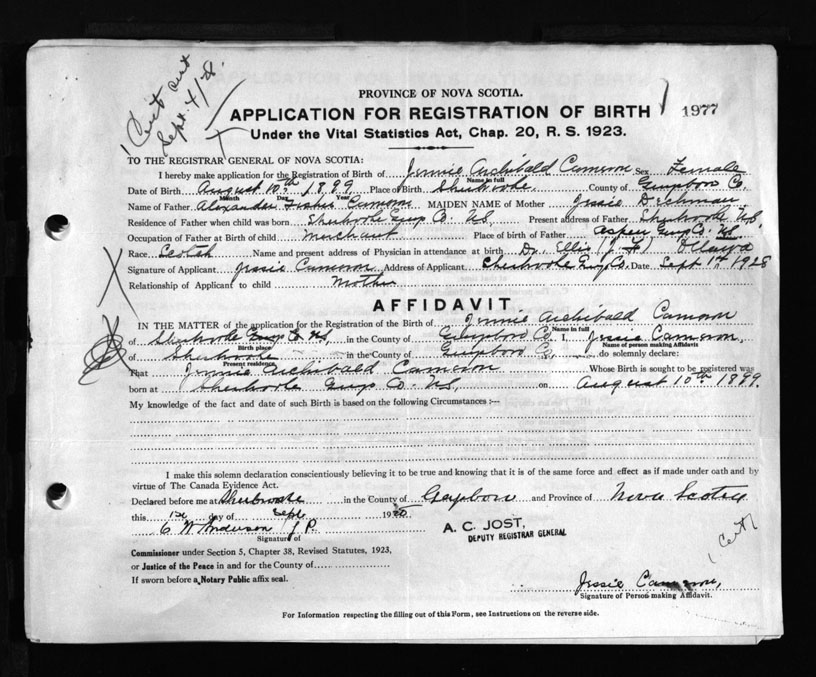 1 Cert cut
Sept. 4/28.
PROVINCE OF NOVA SCOTIA.
APPLICATION FOR REGISTRATION OF BIRTH 1977
Under the Vital Statistics Act, Chap. 20, R. S. 1923.
TO THE REGISTRAR GENERAL OF NOVA SCOTIA:
I hereby make application for the Registration of Birth of Jennie Archibald Cameron Sex Female
Name in full
Date of Birth August 10th 1899 Place of Birth Sherbrooke, County of Guysboro Co.
Month Day Year
Name of Father Alexander Fisher Cameron MAIDEN NAME of Mother Jessie Dickman
Residence of Father when child was born Sherbrooke Guys Co. N.S. Present address of Father Sherbrooke N.S.
Occupation of Father at Birth of child Merchant Place of Birth of Father Aspen Guys Co. N.S.
Race Scotch Name and present address of Physician in attendance at birth Dr. Ellis Ottawa
Signature of Applicant Jessie Cameron Address of Applicant Sherbrooke Guys Co. Date Sept 1st 1928
Relationship of Applicant to child Mother
AFFIDAVIT
IN THE MATTER of the application for the Registration of the Birth of Jennie Archibald Cameron
Name in full
of Sherbrooke Guys Co N.S, in the County of Guysboro Co. I, Jessie Cameron,
Birth place Name of person making Affidavit
of Sherbrooke in the County of Guysboro Co., do solemnly declare:
Present residence
That Jennie Archibald Cameron Whose Birth is sought to be registered was
born at Sherbrooke Guys Co. N.S, on August 10th 1899.
My knowledge of the fact and date of such Birth is based on the following Circumstances :—
I make this solemn declaration conscientiously believing it to be true and knowing that it is of the same force and effect as if made under oath and by
virtue of The Canada Evidence Act.
Declared before me at Sherbrooke in the County of Guysboro and Province of Nova Scotia
this 1st day of Sept 1928
C W Anderson J.P. A. C. JOST,
Signature of DEPUTY REGISTRAR GENERAL
Commissioner under Section 5, Chapter 38, Revised Statutes, 1923,
or Justice of the Peace in and for the County of
If sworn before a Notary Public affix seal.
1 Cert
Jessie Cameron,
Signature of Person making Affidavit.
For Information respecting the filling out of this Form, see Instructions on the reverse side.